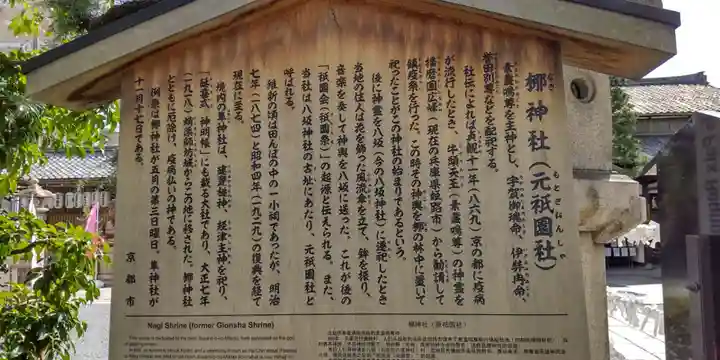 梛神社（元祇園社）
なぎ
もとぎおんしゃ
素戔嗚尊を主神とし、宇賀御魂命、伊弉冉命、
誉田別尊などを配祀する。
社伝によれば貞観十一年（八六九）京の都に疫病
が流行したとき、牛頭天王（素戔嗚尊）の神霊を
播磨国広峰（現在の兵庫県姫路市）から勧請して
鎮疫祭を行った。この時その神輿を梛の林中に置いて
祀ったことがこの神社の始まりであるという。
後に神霊を八坂（今の八坂神社）に遷祀したとき
当地の住人は花を飾った風流傘を立て、鉾を振り、
音楽を奏して神輿を八坂に送った。これが後の
「祇園会（祇園祭）」の起源と伝えられる。また、
当社は八坂神社の古址にあたり、元祇園社と
呼ばれる。
維新の頃は田んぼの中の一小祠であったが、明治
七年（一八七四）と昭和四年（一九二九）の復興を経て
現在に至る。
境内の隼神社は、建甕槌神、経津主神を祀り、
「延喜式 神明帳」にも載る大社であり、大正七年
（一九一八）蛸薬師坊城からこの地に移された。梛神社
とともに厄除け、疫病払いの神である。
例祭は梛神社が五月の第三日曜日。隼神社が
十一月十七日である。
京都市
Nagi Shrine (former Gionsha Shrine)
梛神社（原祇园社）